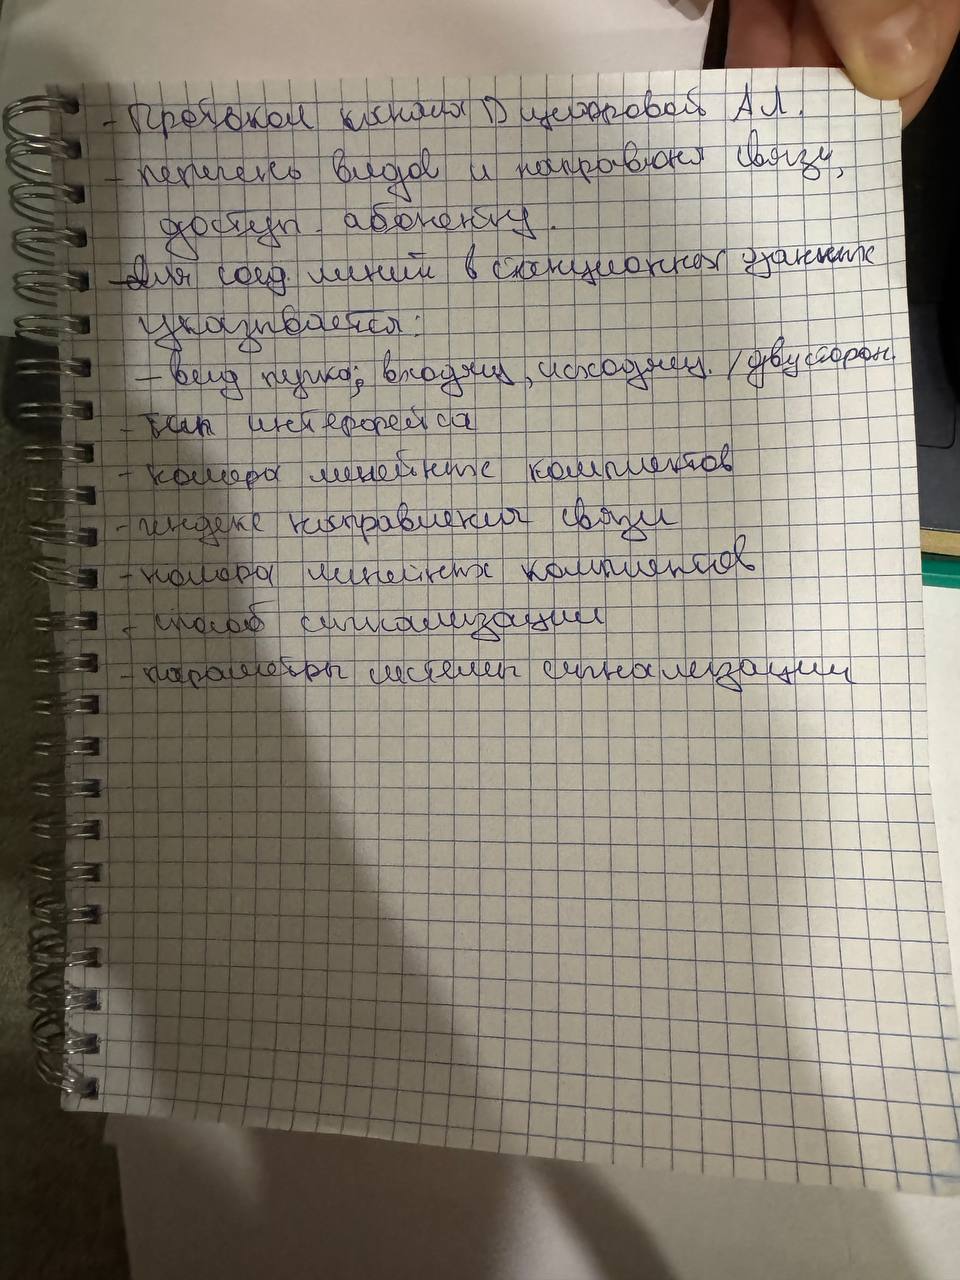 - Протокол канала D цифровой АЛ.
- перечень видов и направлен связи,
доступ. абоненту.
- Для соед. линий в станционных данных
указывается:
- вид пучка; входящ, исходящ. / двусторон.
- тип интерфейса
- номера линейных комплектов
- индекс направления связи
- номера линейных комплектов
- способ сигнализации
- параметры системы сигнализации